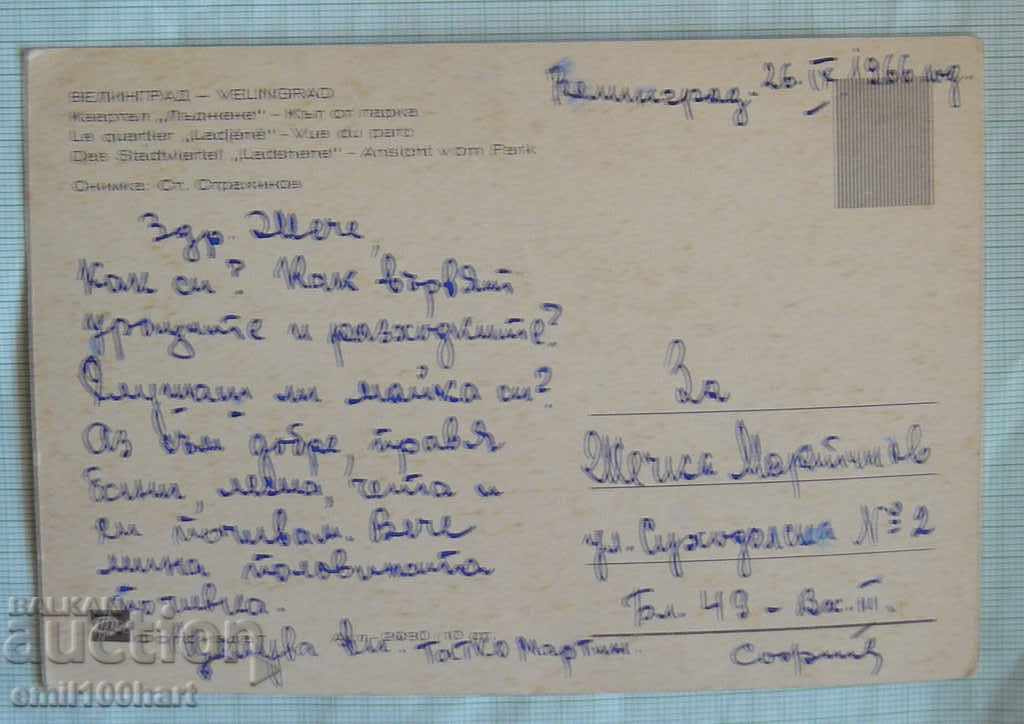 Велинград. 26. IX. 1966 год.
ВЕЛИНГРАД — VELINGRAD
Квартал „Лъджене" — Кът от парка —
Le quartier „Ladjéné" — Vue du parc
Das Stadtviertel „Ladshene" — Ansicht vom Park
Снимка: Ст.
Здр. Жече,
Как си? Как вървят
уроците и разходките?
Слушаш ли майка си?
Аз съм добре, правя
бани, лежа, чета и
си почивам. Вече
мина половината
почивка.
Целува Ви: Татко Мартин.
За
Жечка Мартинов
ул. Суходолска № 2
Бл. 49 - Вх. III.
София
БАЛКАН
auction
emil100hart